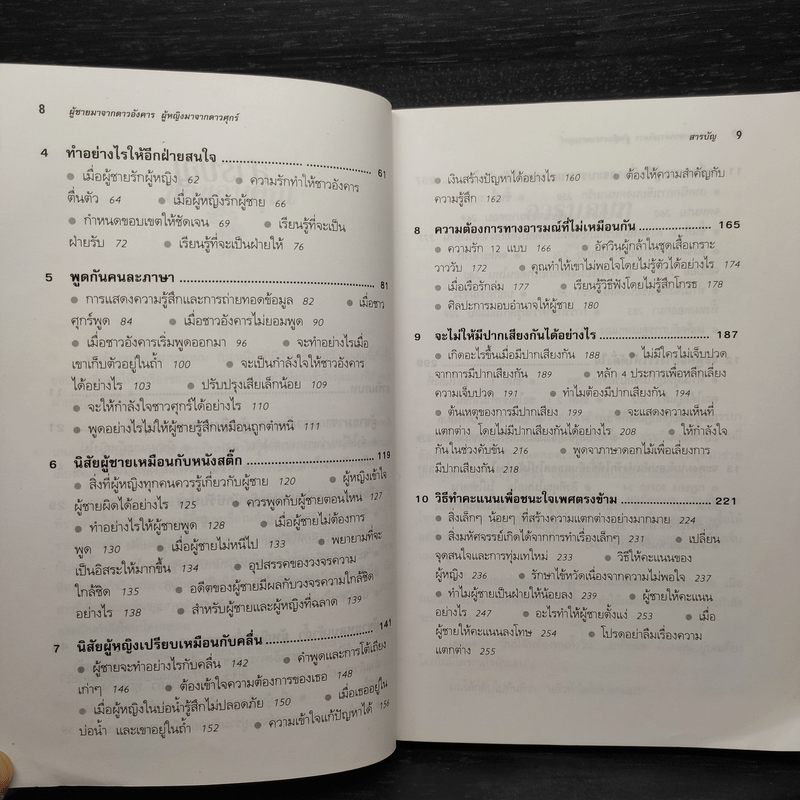 8 ผู้ชายมาจากดาวอังคาร ผู้หญิงมาจากดาวศุกร์
4 ทำอย่างไรให้อีกฝ่ายสนใจ ........................ 61
● เมื่อผู้ชายรักผู้หญิง 62 ● ความรักทำให้ชาวอังคาร
ตื่นตัว 64 ● เมื่อผู้หญิงรักผู้ชาย 66
● กำหนดขอบเขตให้ชัดเจน 69 ● เรียนรู้ที่จะเป็น
ฝ่ายรับ 72 ● เรียนรู้ที่จะเป็นฝ่ายให้ 76
5 พูดกันคนละภาษา ........................ 81
● การแสดงความรู้สึกและการถ่ายทอดข้อมูล 82 ● เมื่อชาว
ศุกร์พูด 84 ● เมื่อชาวอังคารไม่ยอมพูด 90
● เมื่อชาวอังคารเริ่มพูดออกมา 96 ● จะทำอย่างไรเมื่อ
เขาเก็บตัวอยู่ในถ้ำ 100 ● จะเป็นกำลังใจให้ชาวอังคาร
ได้อย่างไร 103 ● ปรับปรุงเสียเล็กน้อย 109
● จะให้กำลังใจชาวศุกร์ได้อย่างไร 110
● พูดอย่างไรไม่ให้ผู้ชายรู้สึกเหมือนถูกตำหนิ 111
6 นิสัยผู้ชายเหมือนกับหนังสติ๊ก ........................ 119
● สิ่งที่ผู้หญิงทุกคนควรรู้เกี่ยวกับผู้ชาย 120 ● ผู้หญิงเข้าใจ
ผู้ชายผิดได้อย่างไร 125 ● ควรพูดกับผู้ชายตอนไหน 127
● ทำอย่างไรให้ผู้ชายพูด 128 ● เมื่อผู้ชายไม่ต้องการ
พูด 130 ● เมื่อผู้ชายไม่หนีไป 133 ● พยายามที่จะ
เป็นอิสระให้มากขึ้น 134 ● อุปสรรคของวงจรความ
ใกล้ชิด 135 ● อดีตของผู้ชายมีผลกับวงจรความใกล้ชิด
อย่างไร 138 ● สำหรับผู้ชายและผู้หญิงที่ฉลาด 139
7 นิสัยผู้หญิงเปรียบเหมือนกับคลื่น ........................ 141
● ผู้ชายจะทำอย่างไรกับคลื่น 142 ● คำพูดและการโต้เถียง
เก่าๆ 146 ● ต้องเข้าใจความต้องการของเธอ 148
● เมื่อผู้หญิงในบ่อน้ำรู้สึกไม่ปลอดภัย 150 ● เมื่อเธออยู่ใน
บ่อน้ำ และเขาอยู่ในถ้ำ 152 ● ความเข้าใจแก้ปัญหาได้ 156
สารบัญ 9
● เงินสร้างปัญหาได้อย่างไร 160 ● ต้องให้ความสำคัญกับ
ความรู้สึก 162
8 ความต้องการทางอารมณ์ที่ไม่เหมือนกัน ........................ 165
● ความรัก 12 แบบ 166 ● อัศวินผู้กล้าในชุดเสื้อเกราะ
วาววับ 172 ● คุณทำให้เขาไม่พอใจโดยไม่รู้ตัวได้อย่างไร 174
● เมื่อเรือรักล่ม 177 ● เรียนรู้วิธีฟังโดยไม่รู้สึกโกรธ 178
● ศิลปะการมอบอำนาจให้ผู้ชาย 180
9 จะไม่ให้มีปากเสียงกันได้อย่างไร ........................ 187
● เกิดอะไรขึ้นเมื่อมีปากเสียงกัน 188 ● ไม่มีใครไม่เจ็บปวด
จากการมีปากเสียงกัน 189 ● หลัก 4 ประการเพื่อหลีกเลี่ยง
ความเจ็บปวด 191 ● ทำไมต้องมีปากเสียงกัน 194
● ต้นเหตุของการมีปากเสียง 199 ● จะแสดงความเห็นที่
แตกต่าง โดยไม่มีปากเสียงกันได้อย่างไร 208 ● ให้กำลังใจ
กันในช่วงคับขัน 216 ● พูดจาภาษาดอกไม้เพื่อเลี่ยงการ
มีปากเสียงกัน 218
10 วิธีทำคะแนนเพื่อชนะใจเพศตรงข้าม ........................ 221
● สิ่งเล็กๆ น้อยๆ ที่สร้างความแตกต่างอย่างมากมาย 224
● สิ่งมหัศจรรย์เกิดได้จากการทำเรื่องเล็กๆ 231 ● เปลี่ยน
จุดสนใจและการทุ่มเทใหม่ 233 ● วิธีให้คะแนนของ
ผู้หญิง 236 ● รักษาไข้หวัดเนื่องจากความไม่พอใจ 237
● ทำไมผู้ชายเป็นฝ่ายให้น้อยลง 239 ● ผู้ชายให้คะแนน
อย่างไร 247 ● อะไรทำให้ผู้ชายตั้งแง่ 253 ● เมื่อ
ผู้ชายให้คะแนนลงโทษ 254 ● โปรดอย่าลืมเรื่องความ
แตกต่าง 255